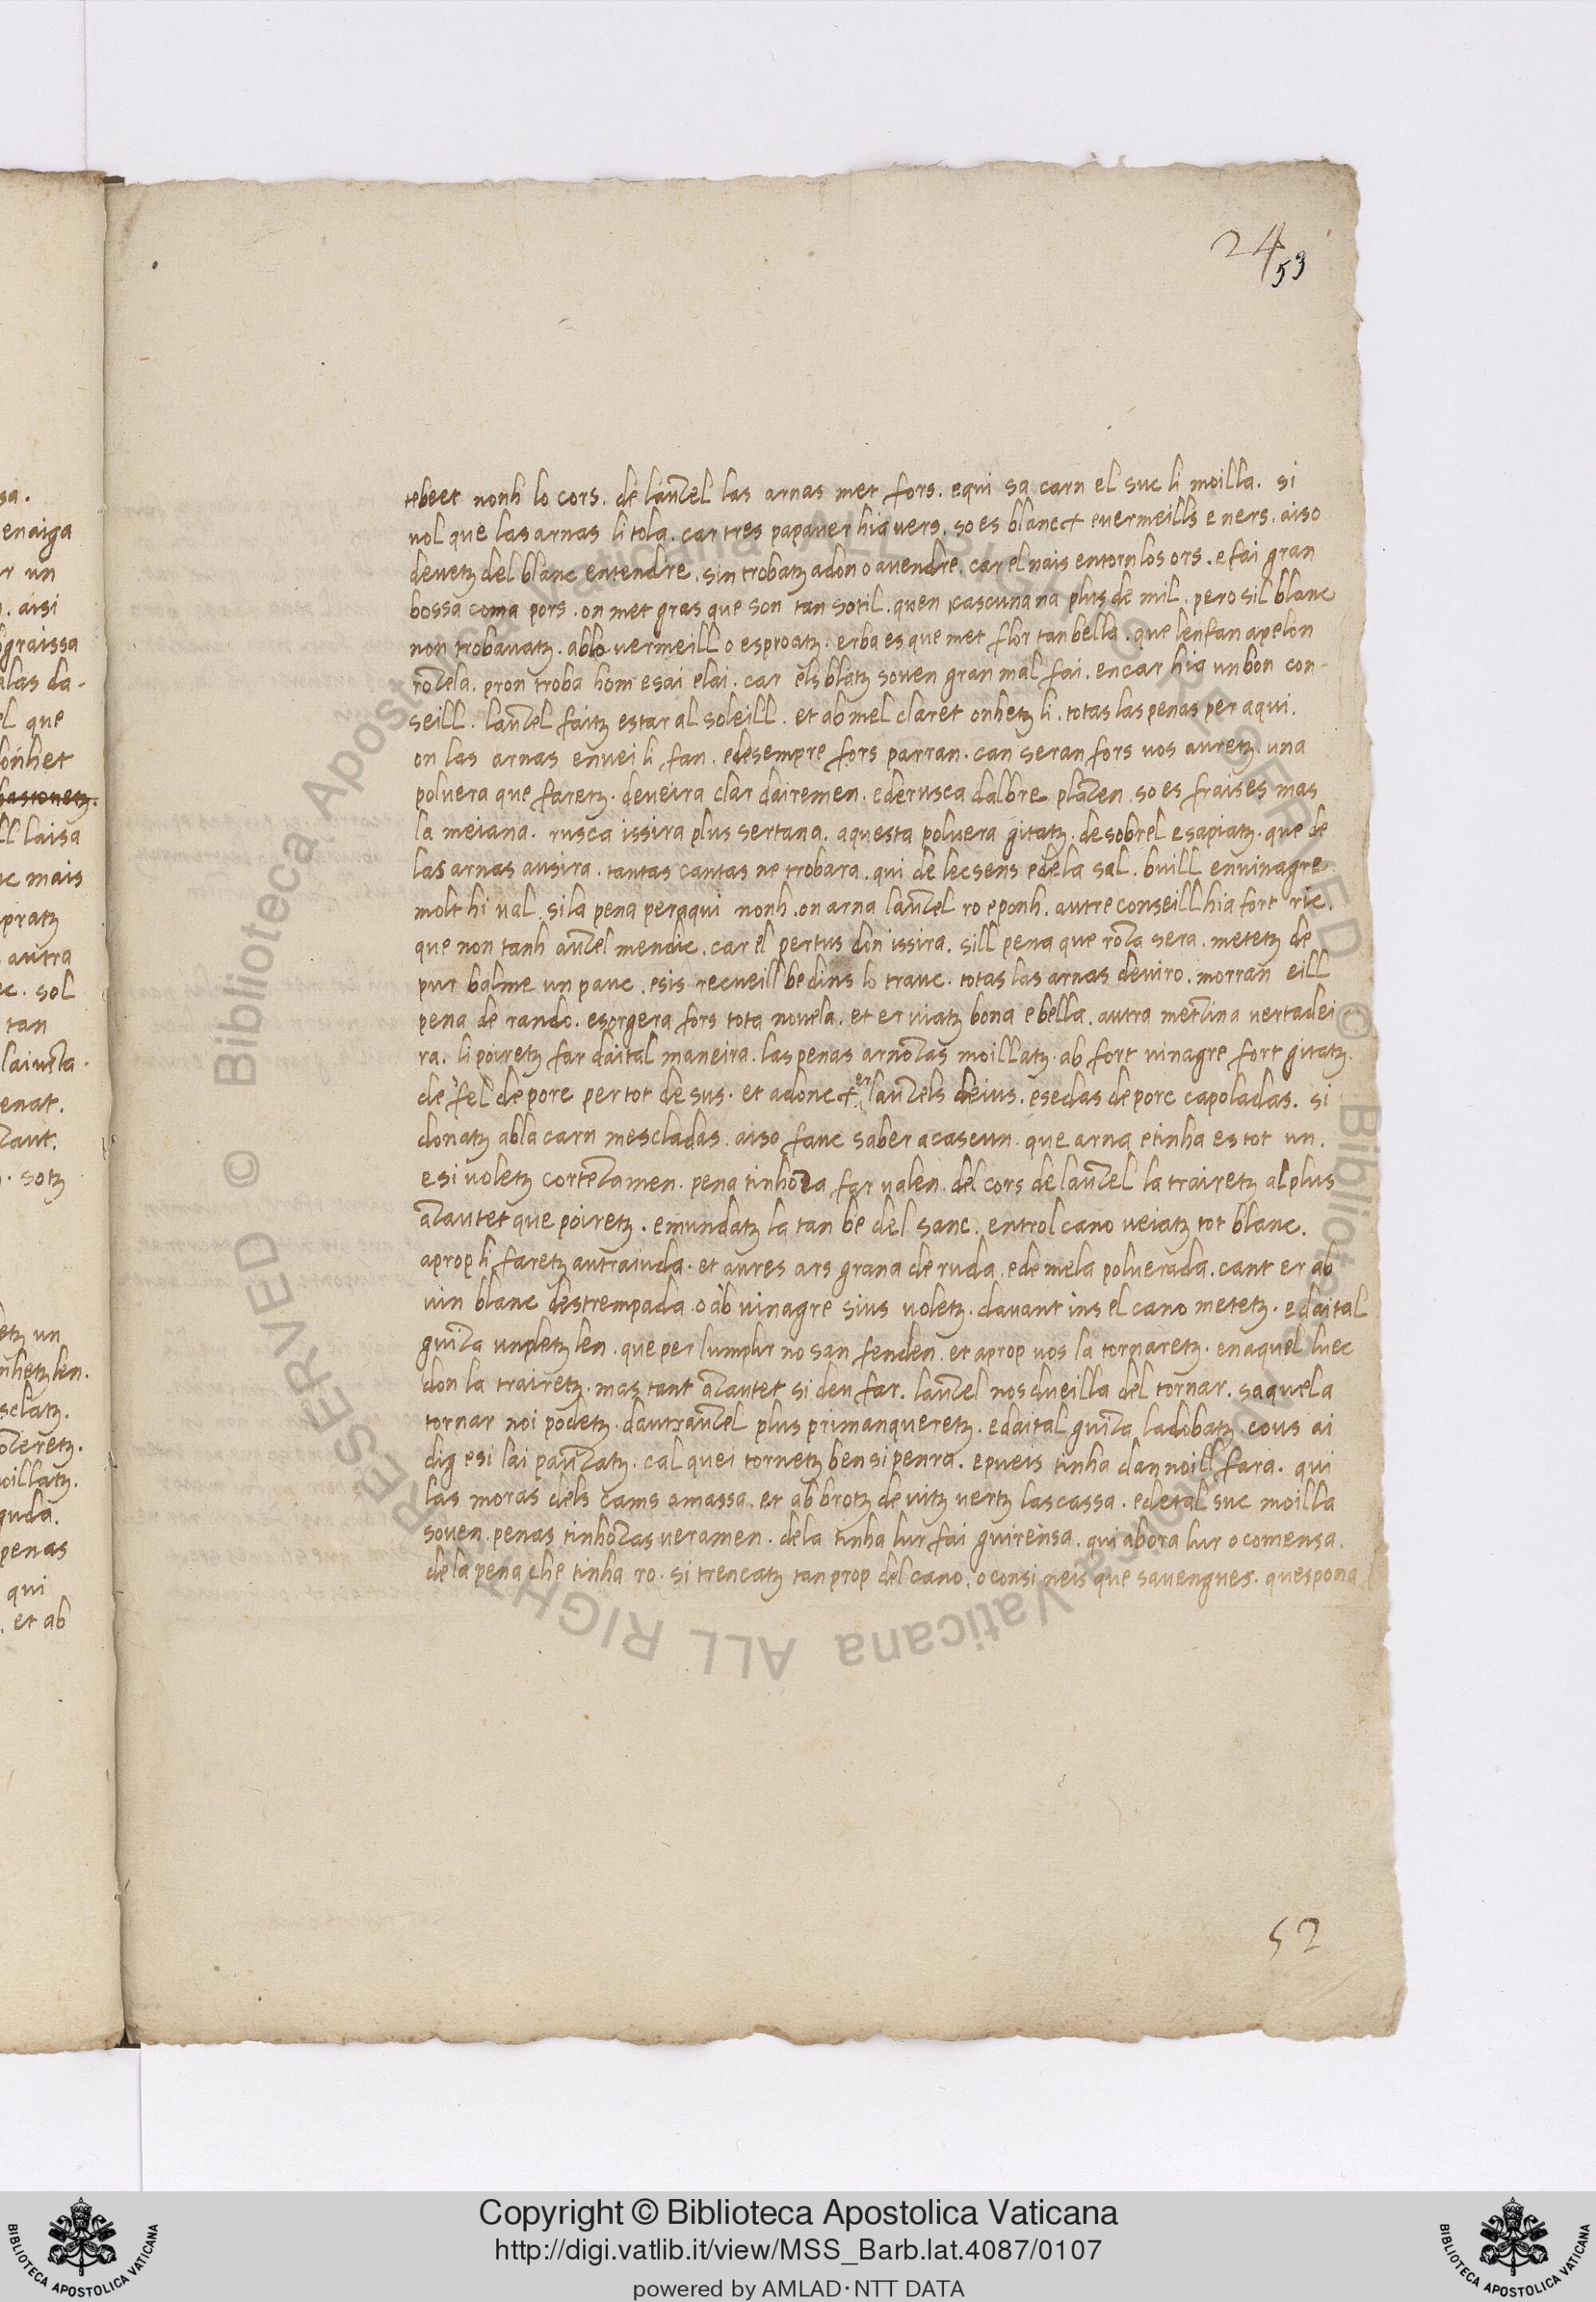 24
53
tebeet nonh lo cors. de lauzel las arnas met fors. equi sa carn el suc li moilla. si
uol que lasarnas li tola. car tres papauer hia uers. so es blanc et euermeills e ners. aiso
deuetz del blanc entendre. sin trobatz adon o auendre. car el nais entorn los ors. e fai gran
bossa coma pors. on met gras que son tan sotil. quen cascuna na plus de mil. pero sil blanc
non trobauatz. ablo uermeill o esproatz. erba es que met flor tan bella. que lenfan apelon
rozela. pron troba hom esai elai. car els blatz souen gran mal fai. encar hia un bon con-
seill. lauzel faitz estar al soleill. et ab mel claret onhetz li. totas laspenas per aqui.
on las arnas enuei li fan. edesempre fors parran. can seran fors uos auretz. una
poluera que faretz. deueira clar dairemen. ederusca dalbre plazen. so es fraises mas
la meiana. rusca issira plus sertana. aquesta poluera gitatz. desobrel esapiatz. que de
las arnas ausira. tantas cantas ne trobara. qui de lecsens edela sal. buill enuinagre
molt hi ual. sila pena peraqui nonh. on arna lauzel ro eponh. autre conseill hia fort ric.
que non tanh auzel mendic. car el pertus don issira. sill pena que roza sera. metetz de
pur balme un pauc. esis recueill bedins lo trauc. totas las arnas deuiro. morran eill
pena de rando. esorgera fors tota nouela. et er uiatz bona ebella. autra mezina uertadei
ra. li poiretz far daital maneira. las penas arnozas moillatz. ab fort uinagre fort gitatz.
de fel de porc per tot de sus. et adonc et er lauzels deius. esedas de porc capoladas. si
donatz abla carn mescladas. aiso fauc saber acascun. que arna etinha es tot un.
e si uoletz cortezamen. pena tinhoza far ualen. del cors de lauzel la trairetz al plus
azautet que poiretz. emundatz la tan be del sanc. entrol cano ueiatz tot blanc.
aprop li faretz autraiuda. et aures ars grana de ruda. ede mela poluerada. cant er ab
uin blanc destrempada. o ab uinagre sius uoletz. dauant ins el cano metetz. e daital
guiza unpletz len. que per lumplir no san fenden. et aprop uos la tornaretz. enaquel luec
don la trairetz. mas tant azautet si deu far. lauzel nos dueilla del tornar. saquela
tornar noi podetz. dautrauzel plus primanqueretz. edaital guiza ladobatz. cous ai
dig esi lai pauzatz. cal quei tornetz ben si penra. epueis tinha dan noill fara. qui
las moras dels cams amassa. et ab brotz de uitz uertz lascassa. edetal suc moilla
souen. penas tinhozas ueramen. dela tinha lur fai guirensa. qui abora lur o comensa.
dela pena che tinha ro. si trencatz tan prop del cano. o consi neis que sauengues. quespona
52
sa.
enaiga
r un
. aisi
bgraissa
alas da-
el que
lonhet
bastonetz.
ll laisa
uc mais
pratz
autra
ec. sol
tan
laiuza.
enat.
zaut.
. sotz
etz un
nhetz len.
sclatz.
ozeretz.
oillatz.
guda.
penas
qui
. et ab
© Biblioteca Apostolica Vaticana ALL RIGHTS RESERVED © Biblioteca Apostolica Vaticana ALL RIGHTS RESERVED
Copyright © Biblioteca Apostolica Vaticana
http://digi.vatlib.it/view/MSS_Barb.lat.4087/0107
powered by AMLAD·NTT DATA
BIBLIOTECA APOSTOLICA VATICANA
BIBLIOTECA APOSTOLICA VATICANA